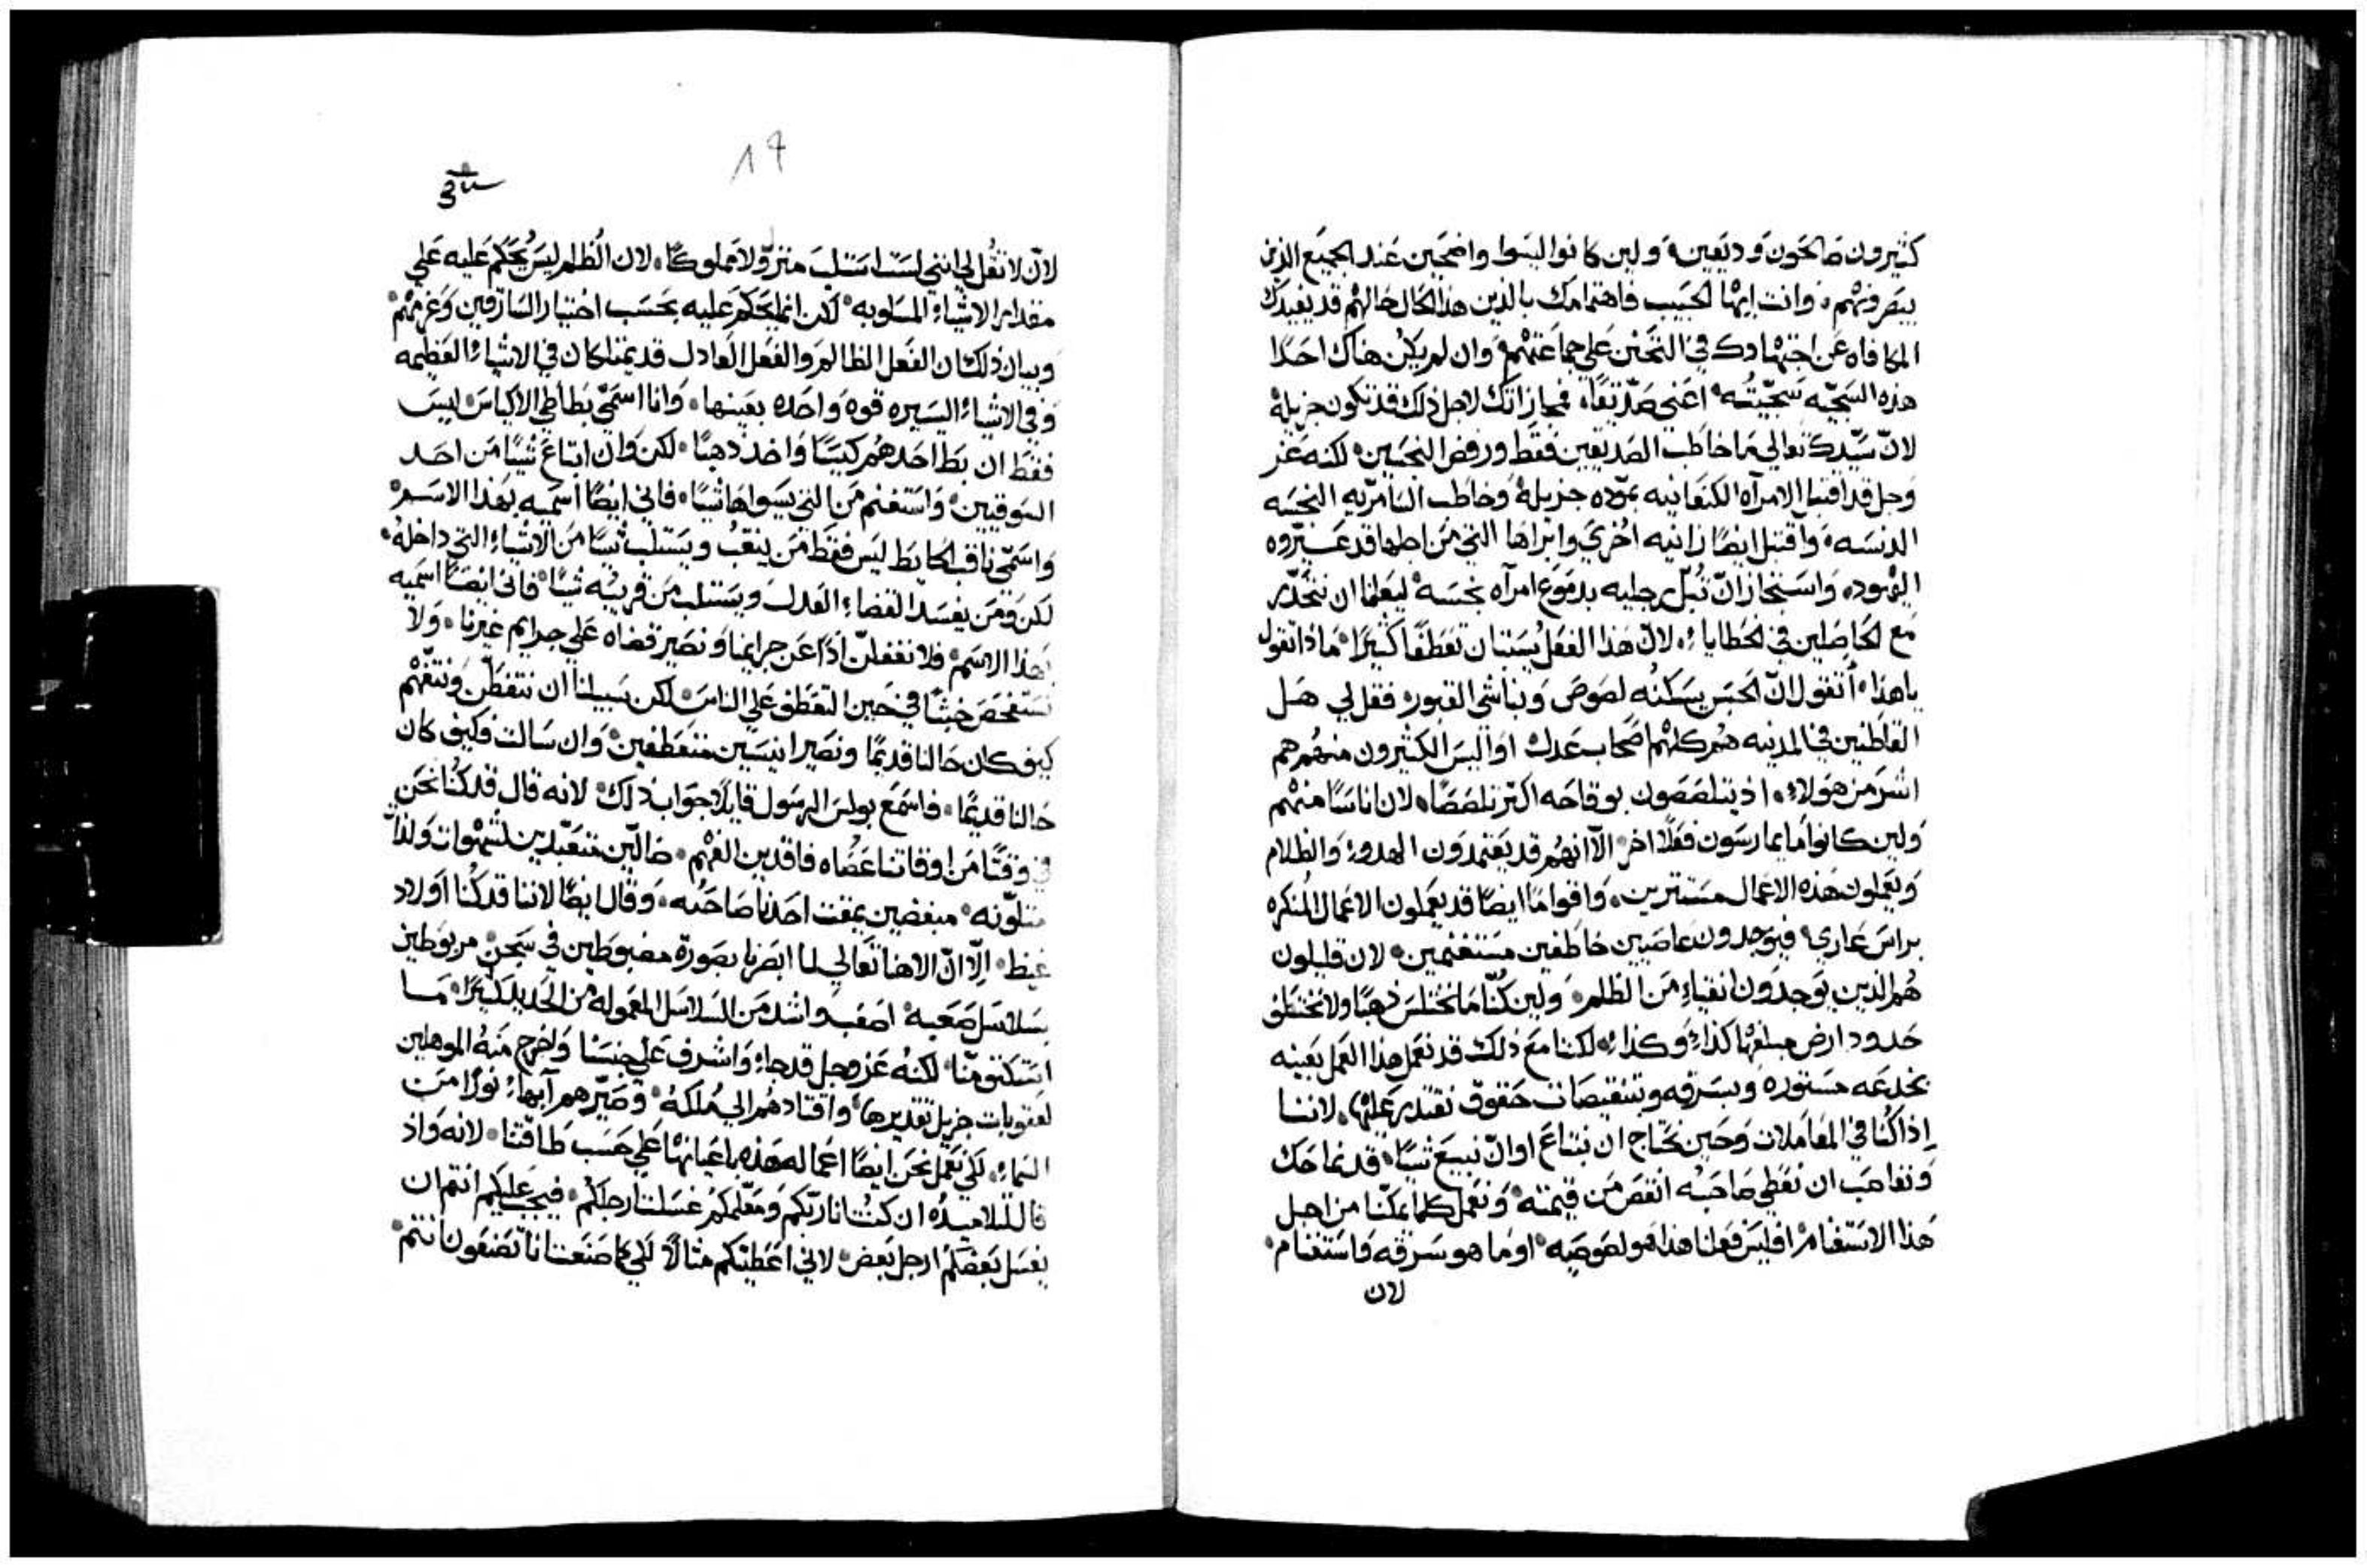 كثيرون صالحون وديعين، ولين كانوا ليسوا واضحين عند الجميع الذين
يبصرونهم، وانت ايها الحبيب فاهتمامك بالذين هذا الحال حالهم قد يفيدك
المكافاه عن اجتهادك في التحنن على جماعتهم، وان لم يكن هناك احدًا
هذه السجيه سجيّته، اعني صدّيقًا، فمجازاتك لاجل ذلك قد تكون جزيلة
لانّ سيّدك تعالي ما خاطب الصديقين فقط ورفض النجسين، لكنه عز
وجل قد اقتبل الامرآه الكنعانيه بموّده جزيلة وخاطب السامرّيه النجسه
الدنسه، واقتبل ايضًا زانيه اخري وابراها التي من اجلها قد عيّروه
اليهود، واستجاز انّ تُبلّ رجليه بدموع امرآه نجسه ليعلمنا ان نتحدّر
مع الحاصلين في الخطايا، لانّ هذا الفعل يستبان تعطفًا كثيرًا، ماذا تقول
يا هذا، اتقول انّ الحبس يسكنُه لصوص ونباشي القبور، فقل لي هل
القاطنين في المدنيه هم كلهم اصحاب عدل، او اليس الكثيرون منهم هم
اشر من هولاء، اذ يتلصصون بوقاحه اكثر تلصصًا، لان اناسًا منهم
ولين كانوا ما يمارسون فعلًا اخر، الّا انهم قد يعتمدون الهدوء والظلام
ويعملون هذه الاعمال مستترين، واقوامًا ايضًا قد يعملون الاعمال المنكره
براس عاري، فيوجدون عاصيين خاطفين مستغنمين، لان قليلون
هم الذين يوجدون انقياء من الظلم، ولين كنّا ما نختلس ذهبًا ولا نختطف
حدود ارض مبلغها كذا، وكذا، لكننا مع ذلك قد نعمل هذا العمل بعينه
بخدعه مستوره وبسرقه وبتنقيصات حقوق نقتدر عليها، لاننا
إذا كنا في المعاملات وحين نحتاج ان نبتاع او انّ نبيع شيًا، قد نماحك
ونغاصب ان نعطي صاحبه انقص من قيمته، ونعمل كلما يمكنّا من اجل
هذا الاستغنام، افليس فعلنا هذا هو لصوصيه، او ما هو سرقه واستغنام،
لان
١٩
لانّ لا تقُل لي انني لست استلب منزلًا ولا مملوكًا، لان الظلم ليس يُحكم عليه علي
مقدار الاشياء المسلوبه، لكن انما يُحكم عليه بحسب اختيار السارقين وعزمهم،
وبيان ذلك ان الفعل الظالم والفعل العادل قد يمتلكان في الاشياء العظيمه
وفي الاشياء اليسيره قوه واحده بعينها، وانا اسمّي بطاطي الاكياس ليس
فقط ان بط احدهم كيسًا واخذ ذهبًا، لكن وان ابتاع شيًا من احد
السوقيين، واستغنم من التي يسواها شيًا، فاني ايضًا اسميه بهذا الاسم،
واسمّي ناقب الحايط ليس فقط من ينقب ويستلب شيًا من الاشياء التي داخله،
لكن ومن يفسد القضاء العدل ويستلب من قريبه شيًا، فاني ايضًا اسميه
بهذا الاسم، فلا نغفلنّ اذًا عن جرايمنا ونصير قضاه علي جرايم غيرنا، ولا
نستفحص خبثًا في حين التعطف علي الناس، لكن سبيلنا ان نتفطّن ونتفّهم
كيف كان حالنا قديمًا ونصير انيسين متعطفين، وان سالت فكيف كان
حالنا قديمًا، فاسمع بولس الرسول قايلًا جواب ذلك، لانه قال قد كنا نحن
في وقتًا من اوقاتنا عُصاه فاقدين الفهم، ضالّين متعبّدين لشهوات ولذات
متلوّنه، مبغضين يمقت احدنا صاحبه، وقال ايضًا لاننا قد كنا اولاد
غيظ، الّا انّ الاهنا تعالي لما ابصرنا بصورة مضبوطين في سجن، مربوطين
بسلاسل صعبه، اصعب واشد من السلاسل المعموله من الحديد كثيرًا، ما
استنكف منّا، لكنُه عز وجل قد جاء واشرف علي حبسنا واخرج منه الموهلين
لعقوبات جزيل تقديرها، واقتادهم الي مُلكه، وصيّرهم آبهاء نورًا من
السماء، لكي نعمل نحن ايضًا اعماله هذه باعيانها علي حسب طاقتنا، لانه واذ
قال لتلاميده ان كنت انا ربّكم ومعّلمكم غسلت ارجلكم، فيجب عليكم انتم ان
يغسل بعضكم ارجل بعض، لاني اعطيتكم مثالًا لكي كما صنعت انا تصنعون انتم،